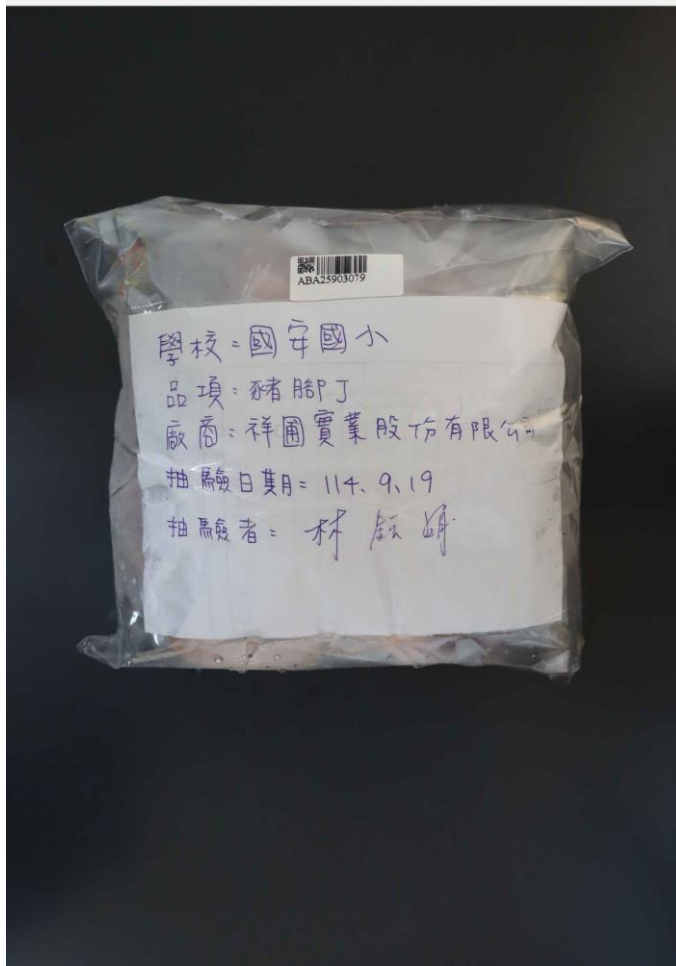 ABA25903079
學校:國安國小
品項:豬腳丁
廠商:祥圃實業股份有限公司
抽驗日期:114、9、19
抽驗者:林鈺娟